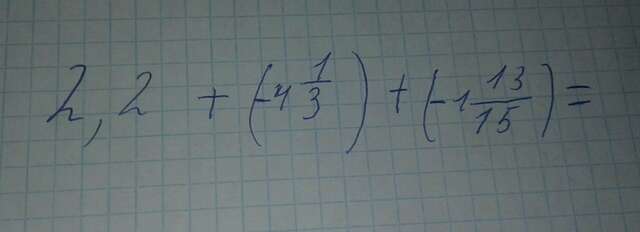 2,2 + (-4 1/3) + (-1 13/15) =